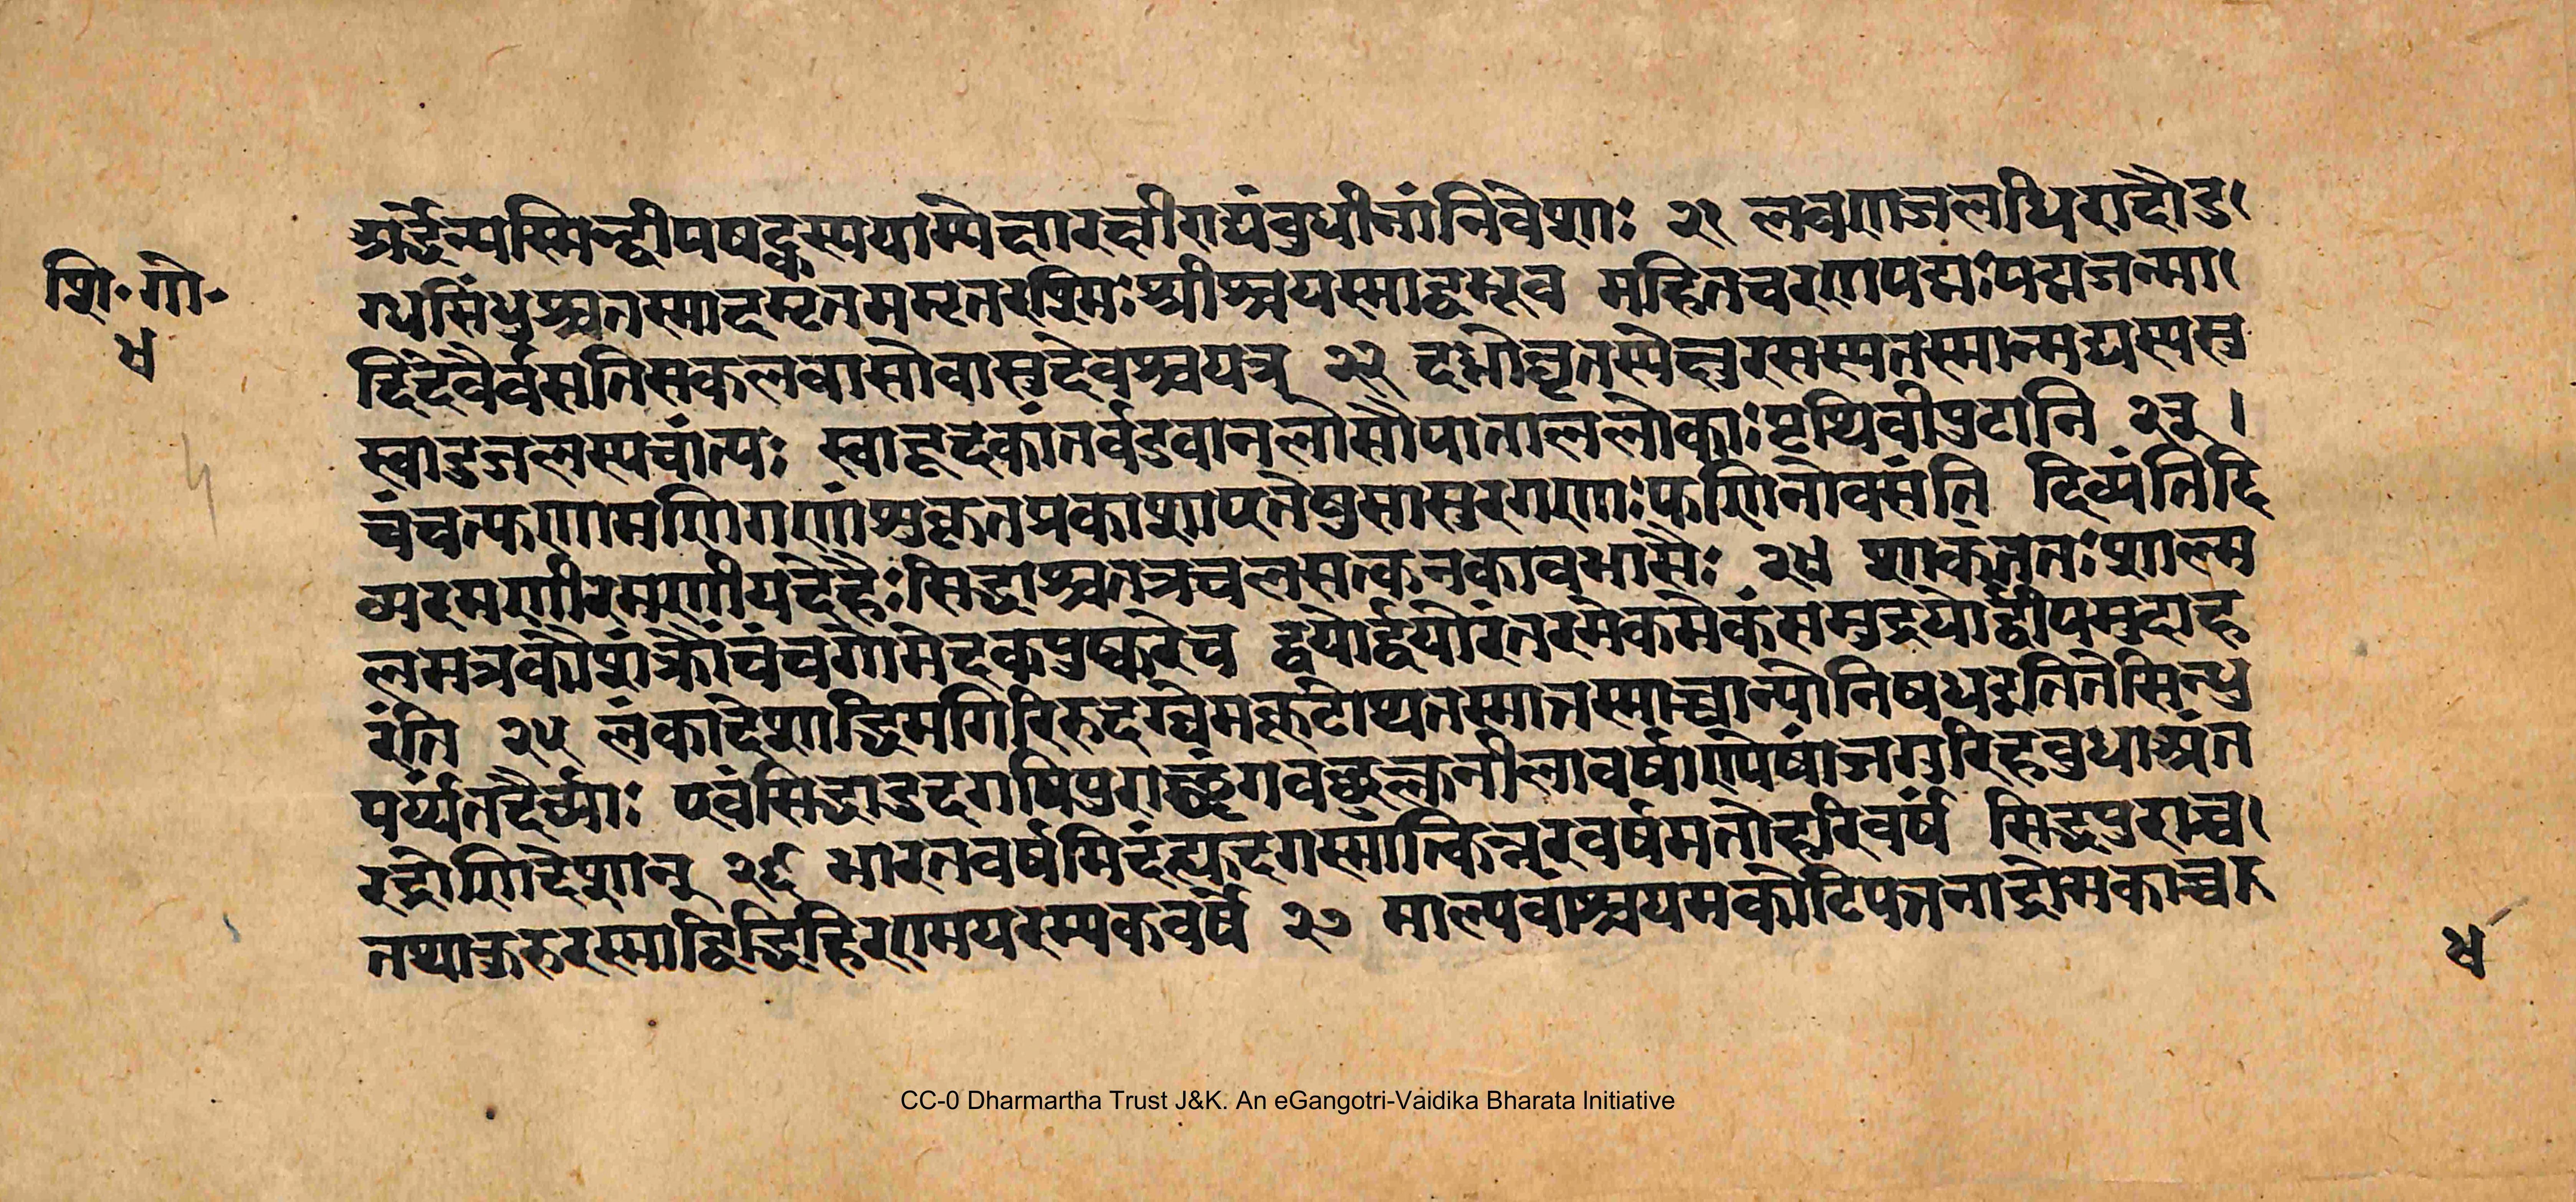 अर्द्धेन्यस्मिन्द्वीपषट्कस्पयाम्पेक्षारक्षीराद्यंवुधीनांनिवेशाः २१ लवणजलधिरादौदु।
शि॰गो॰
४
ग्धसिंधुश्चतस्मादमृतममृतरश्मिःश्रीश्चयस्माद्वभूव महितचरणपद्मःपद्मजन्मा।
दिदेवैर्वसतिसकलवासोवासुदेवश्चयत्र २२ दध्नोघृतस्येक्षुरसस्यतस्मान्मद्यस्यस्व
स्वादुजलस्यचांत्यः स्वादूदकांतर्वडवानलोसौपाताललोकाःपृथिवीपुटानि २३।
चंचत्फणामणिगणांशुकृतप्रकाशाएतेषुसासुरगणाःफणिनोवसंति दिव्यंतिदि
व्यरमणीरमणीयदेहैःसिद्धाश्चतत्रचलसत्कनकावभासैः २४ शाकंततःशाल्म
लमत्रकौशंक्रौंचंचगोमेदकपुष्करेच द्वयोर्द्वयोरंतरमेकमेकंसमुद्रयोर्द्वीपमुदाह
रंति २५ लंकादेशाद्धिमगिरिरुदग्घेमकूटोथतस्मात्तस्माच्चान्योनिषधइतितेसिन्धु
पर्य्यंतदैर्घ्याः एवंसिद्धादुदगपिपुराच्छृंगवछुक्लनीलावर्षाण्येषांजगुरिहबुधाअंत
रद्रोणिदेशान् २६ भारतवर्षमिदंह्युदगस्मात्किन्नरवर्षमतोहरिवर्षं सिद्धपुराच्च।
तथाकुरुरस्माद्विद्धिहिरण्मयरम्यकवर्षे २७ माल्यवांश्चयमकोटिपत्तनाद्रोमकाच्च
४
CC-0 Dharmartha Trust J&K. An eGangotri-Vaidika Bharata Initiative